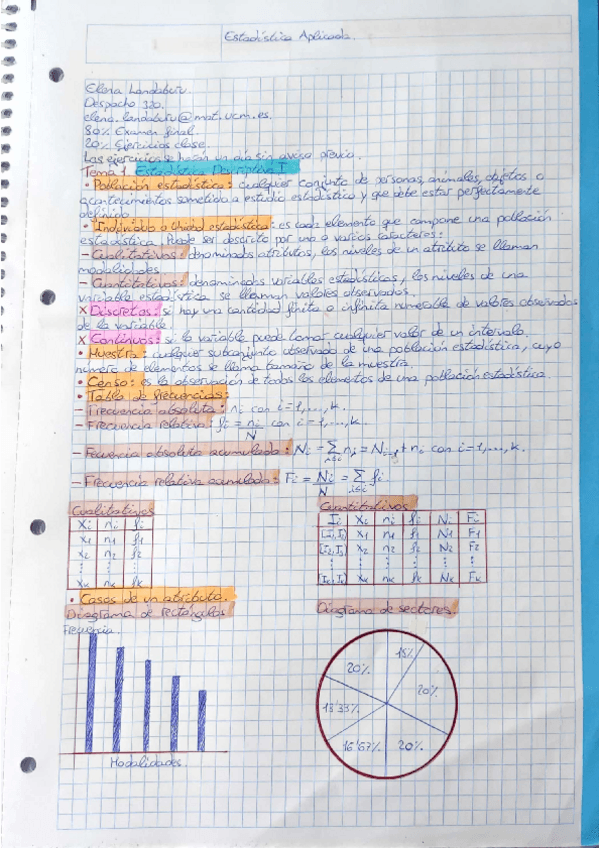 Estadística Aplicada.
Elena Landaburu.
Despacho 320.
elena.landaburu@mat.ucm.es.
80% Examen final.
20% Ejercicios clase.
Los ejercicios se hacen un día sin aviso previo.
Tema 1. Estadística Descriptiva I
• Población estadística: cualquier conjunto de personas, animales, objetos o
acontecimientos sometido a estudio estadístico y que debe estar perfectamente
definido.
• Individuo o Unidad estadística: es cada elemento que compone una población
estadística. Puede ser descrito por uno o varios caracteres:
- Cualitativos: denominados atributos, los niveles de un atributo se llaman
modalidades.
- Cuantitativos: denominados variables estadísticas, los niveles de una
variable estadística se llaman valores observados.
x Discretos: si hay una cantidad finita o infinita numerable de valores observados
de la variable.
x Continuos: si la variable puede tomar cualquier valor de un intervalo.
• Muestra: cualquier subconjunto observado de una población estadística, cuyo
número de elementos se llama tamaño de la muestra.
• Censo: es la observación de todos los elementos de una población estadística.
• Tabla de frecuencias:
- Frecuencia absoluta: ni con i=1,...,k.
- Frecuencia relativa: fi = ni/N con i=1,...,k.
- Fecuencia absoluta acumulada: Ni = Σ nj = Ni-1 + ni con i=1,...,k.
- Frecuencia relativa acumulada: Fi = Ni/N = Σ fj.
Cualitativos Cuantitativos
xi ni fi Ii xi ni fi Ni Fi
x1 n1 f1 x1 n1 f1 N1 F1
x2 n2 f2 x2 n2 f2 N2 F2
⋮ ⋮ ⋮ ⋮ ⋮ ⋮ ⋮ ⋮ ⋮
xk nk fk xk nk fk Nk Fk
• Casos de un atributo.
Diagrama de rectángulos Diagrama de sectores
Frecuencia.
15%
20%
20%
13'33%
16'67% 20%
Modalidades.